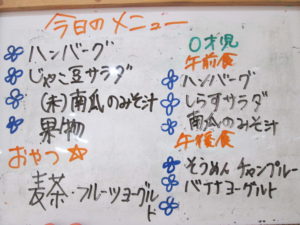 今日のメニュー
ハンバーグ
じゃこ豆サラダ
(米)南瓜のみそ汁
果物
おやつ☆
麦茶・フルーツヨーグルト
0才児
午前食
ハンバーグ
しらすサラダ
南瓜のみそ汁
午後食
そうめんチャンプルー
バナナヨーグルト